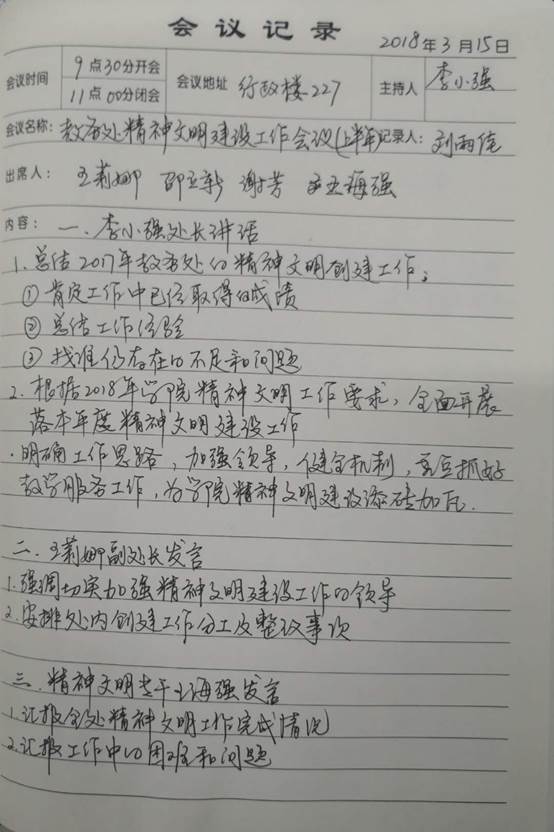 会议记录
2018年3月15日
会议时间 9点30分开会 11点00分闭会 会议地址 行政楼227 主持人 李小强
会议名称：教务处精神文明建设工作会议(上半年) 记录人：刘雨佳
出席人：王莉娜 邵立新 谢芳 王海强
内容：一、李小强处长讲话
1.总结2017年教务处的精神文明创建工作：
①肯定工作中已经取得的成绩
②总结工作经验
③找准仍存在的不足和问题
2.根据2018年学院精神文明工作要求，全面开展
落本年度精神文明建设工作
·明确工作思路，加强领导，健全机制，抓好
教学服务工作，为学院精神文明建设添砖加瓦.
二、王莉娜副处长发言
1.强调切实加强精神文明建设工作的领导
2.安排处内创建工作分工及整改事项
三、精神文明干海强发言
1.汇报全处精神文明工作完成情况
2.汇报工作中的困难和问题